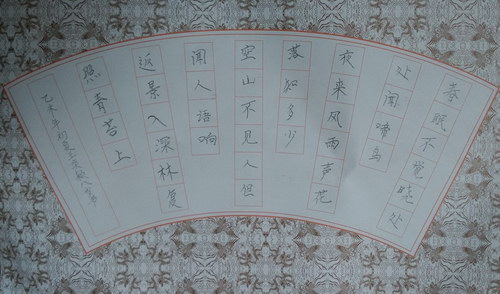 春眠不觉晓处
处闻啼鸟
夜来风雨声花
落知多少
空山不见人但
闻人语响
返景入深林复
照青苔上
乙未年初夏